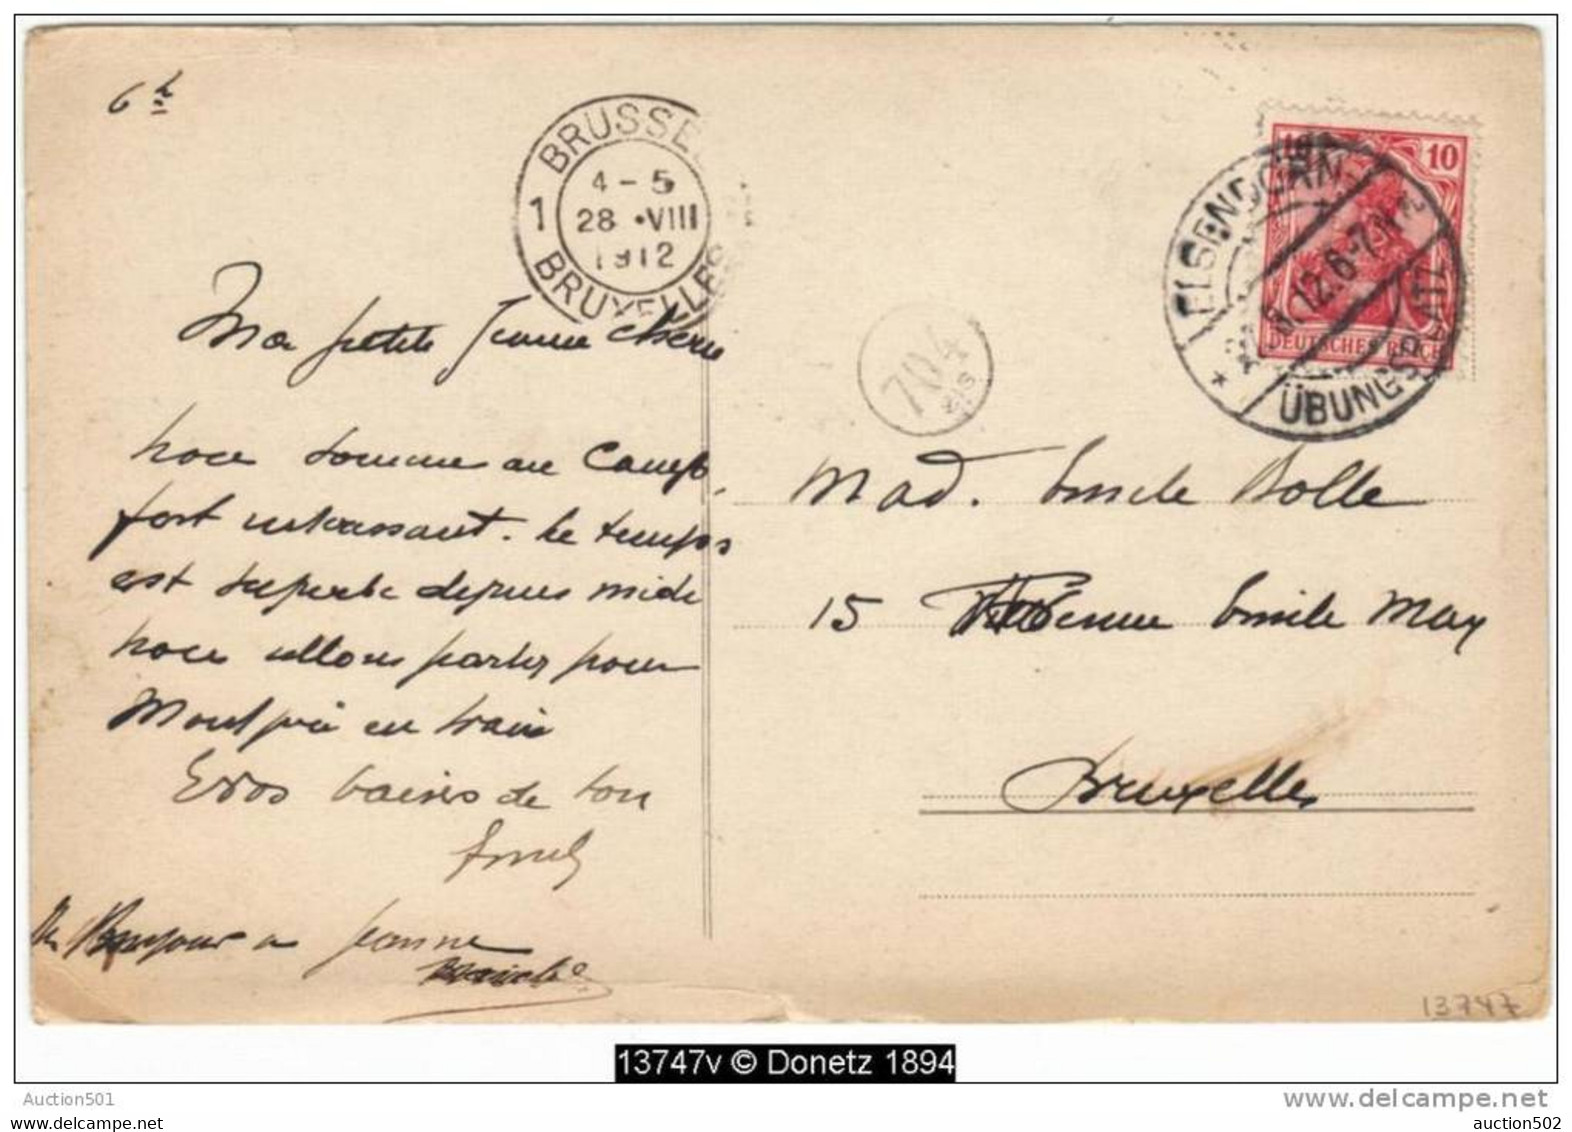 6 h
BRUSSEL
4 - 5
1 28 • VIII
1912
BRUXELLES
10 10
DEUTSCHES REICH
ELSENBORN
12.6-7.N
* ÜBUNGSPLATZ
704
BIS
Ma petite Jeanne cherie
nous sommes au Camp,
fort intéressant. le temps
est superbe depuis midi
nous allons partir pour
en train
Gros baisers de ton
Emile
Bonjour a Jeanne
Mad. Emile Bolle
15 Avenue Emile Max
Bruxelles
13747
13747v © Donetz 1894
Auction501
www.delcampe.net
www.delcampe.net
auction502